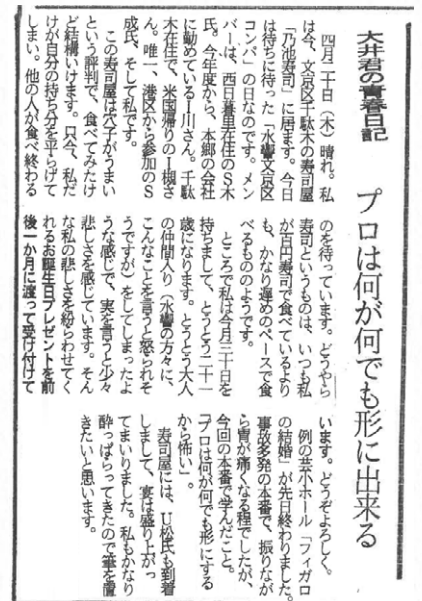 大井君の青春日記
プロは何が何でも形に出来る
四月二十日（木）晴れ。私
は今、文京区千駄木の寿司屋
「乃池寿司」に居ます。今日
は待ちに待った「水響文京区
コンパ」の日なのです。メン
バーは、西日暮里在住のS木
氏。今年度から、本郷の会社
に勤めているI川さん。千駄
木在住で、米国帰りのI槻さ
ん。唯一、港区から参加のS
成氏、そして私です。
この寿司屋は穴子がうまい
という評判で、食べてみたけ
ど結構いけます。只今、私だ
けが自分の持ち分を平らげて
しまい。他の人が食べ終わる
のを待っています。どうやら
寿司というものは、いつも私
が百円寿司で食べているより
も、かなり遅めのペースで食
べるもののようです。
ところで私は今月三十日を
持ちまして、とうとう二十一
歳になります。とうとう大人
の仲間入り（水響の方々に、
こんなことを言うと怒られそ
うですが）をしてしまったよ
うな感じで、実を言うと少々
悲しさを感じています。そん
な私の悲しさを紛らわせてく
れるお誕生日プレゼントを前
後一か月に渡って受け付けて
います。どうぞよろしく。
例の芸小ホール「フィガロ
の結婚」が先日終わりました。
事故多発の本番で、振りなが
ら胃が痛くなる程でしたが、
今回の本番で学んだこと。
「プロは何が何でも形にする
から怖い」。
寿司屋には、U松氏も到着
しまして、宴は盛り上がっ
てまいりました。私もかなり
酔っぱらってきたので筆を置
きたいと思います。